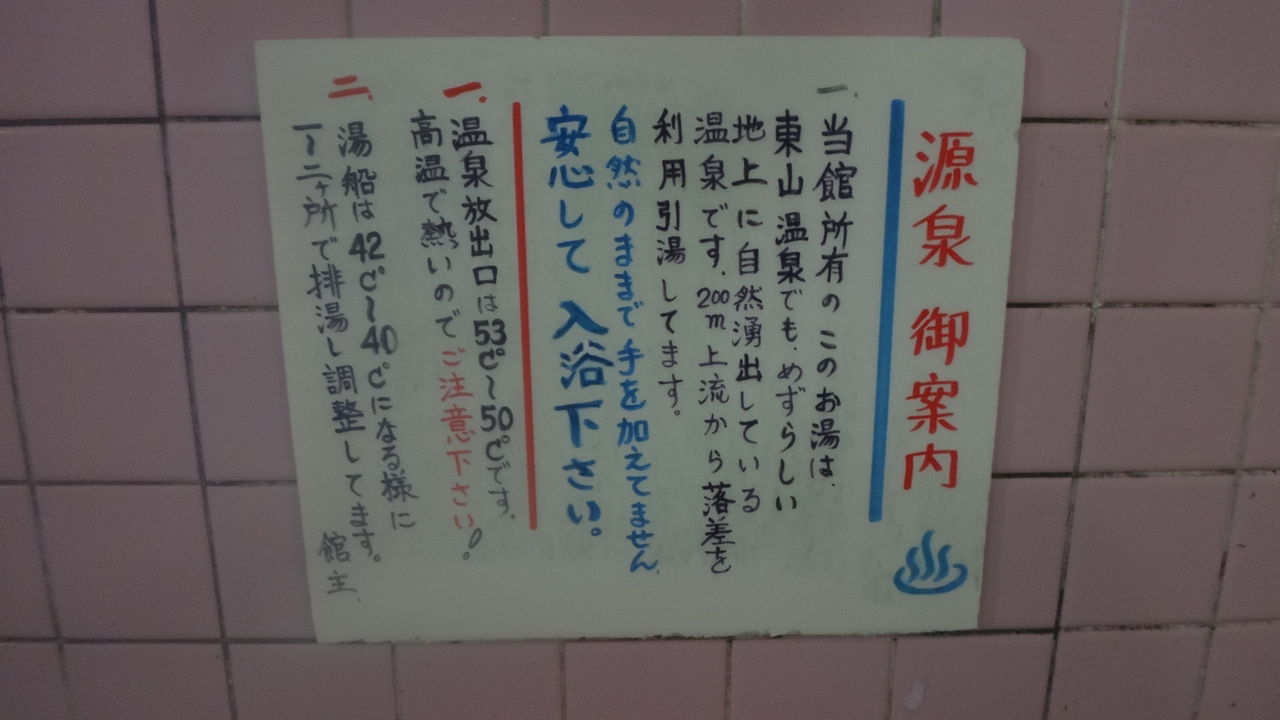 源泉 御案内
一、当館所有のこのお湯は、
東山温泉でも、めずらしい
地上に自然湧出している
温泉です、200m上流から落差を
利用引湯してます。
自然のままで手を加えてません
安心して入浴下さい。
一、温泉放出口は53℃~50℃です、
高温で熱いのでご注意下さい!
二、湯船は42℃~40℃になる様に
一~二ヶ所で排湯し調整してます。
館主、